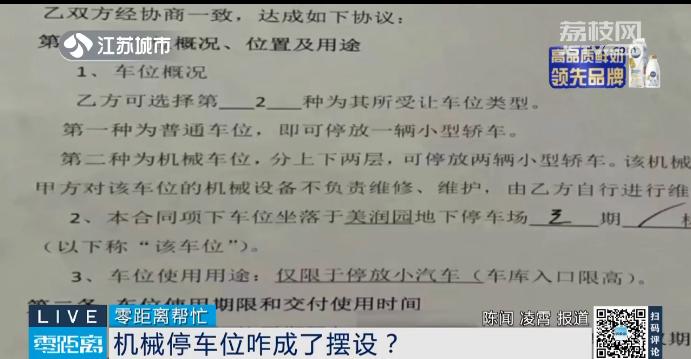 乙双方经协商一致，达成如下协议：
概况、位置及用途
江苏城市
荔枝网
高品质鲜奶
领先品牌
1、车位概况
乙方可选择第 2 种为其所受让车位类型。
第一种为普通车位，即可停放一辆小型轿车。
第二种为机械车位，分上下两层，可停放两辆小型轿车。该机械
甲方对该车位的机械设备不负责维修、维护，由乙方自行进行维
2、本合同项下车位坐落于美润园地下停车场 期
（以下称“该车位”）。
3、车位使用用途：仅限于停放小汽车（车库入口限高）。
第二条 车位使用期限和交付使用时间
LIVE 零距离帮忙
陈闻 凌霄 报道
零距离
机械停车位咋成了摆设？
扫码评论
期